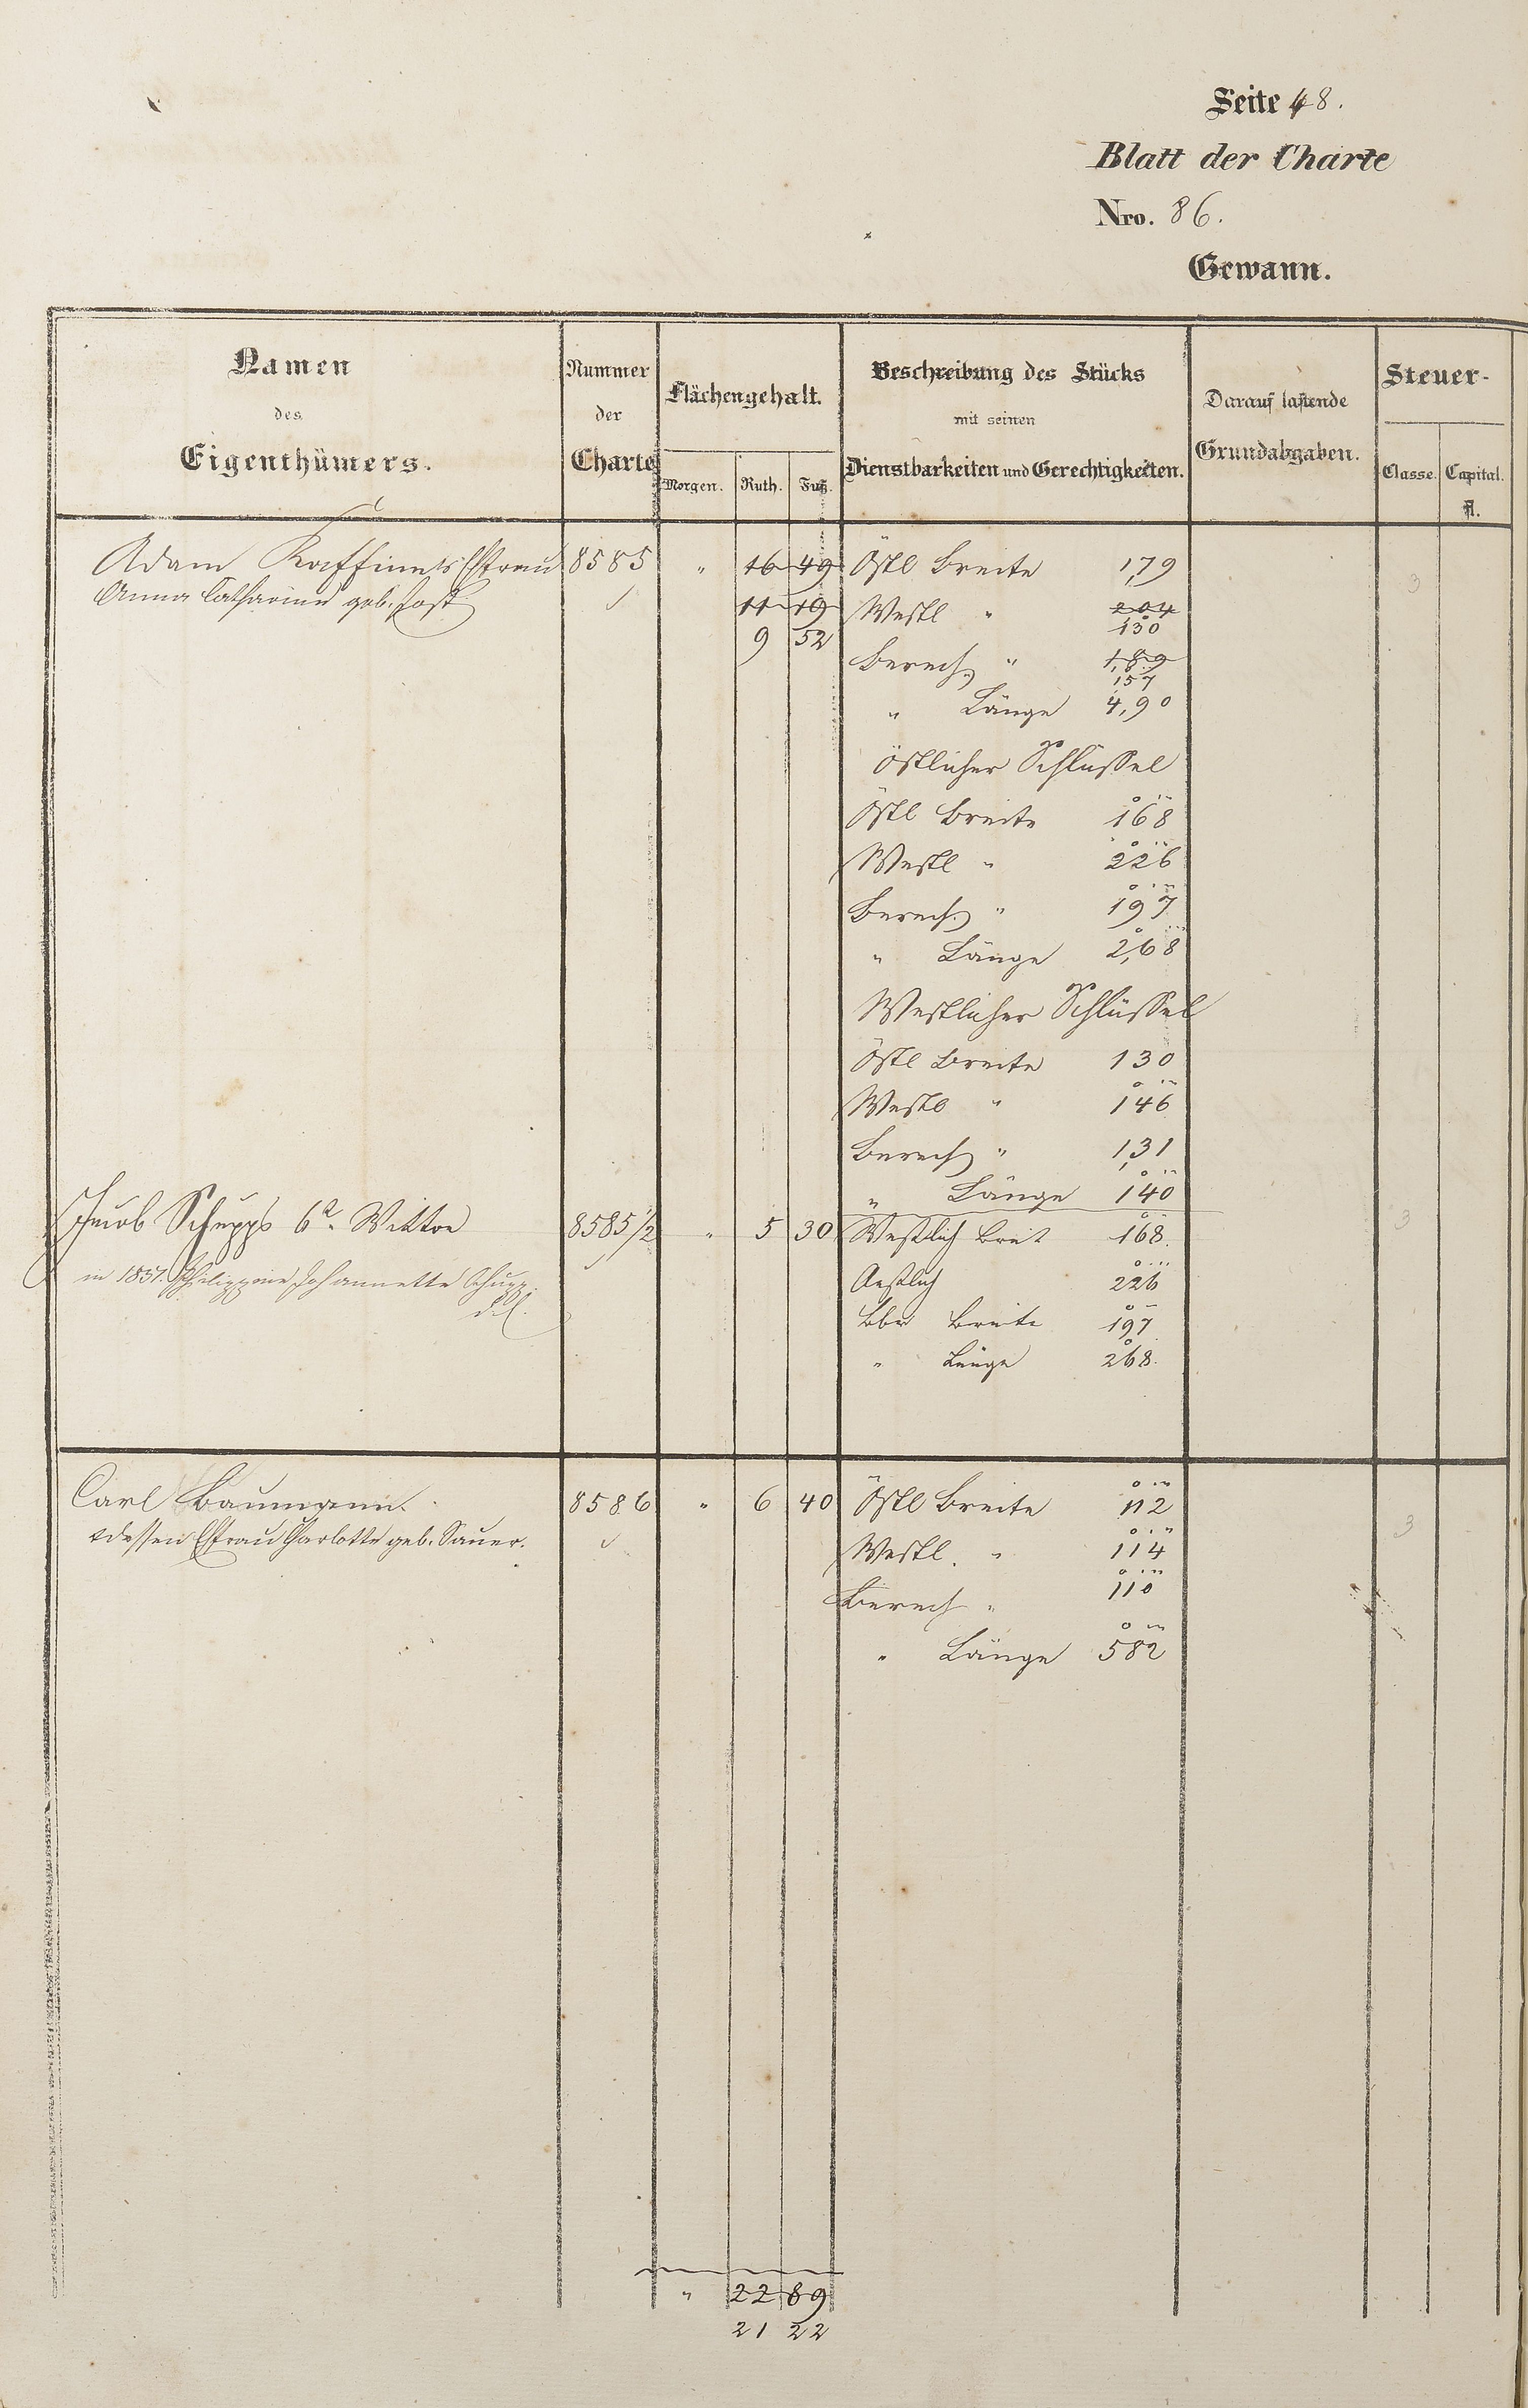 Seite 48.
Blatt der Charte
Nro. 86.
Gewann.
Namen
des
Eigenthümers.
Nummer
der
Charte
Flächengehalt.
Morgen. Ruth. Fuß.
Beschreibung des Stücks
mit seinen
Dienstbarkeiten und Gerechtigkeiten.
Darauf lastende
Grundabgaben.
Steuer-
Classe. Capital.
fl.
Adam Kaffines Ehfrau 8585 " 16 49 Östl Breite 1,79 3
Anna Catharine geb. Jost 11 19 Westl " 204
9 52 130
Berech. " 1,89
157
" Länge 4,90
östlicher Schlüssel
Östl Breite 168
Westl " 226
Berech. " 197
" Länge 2,68
Westlicher Schlüssel
Östl Breite 130
Westl " 146
Berech " 1,31
" Länge 140
Jacob Schupps 6r. Wittwe 8585 1/2 " 5 30 Westlich Breit 168. 3
in 1837. Philippine Johannette Schupp
Aestlich 226
Bbr Breite 197
" Länge 268.
Carl Baumann 8586 " 6 40 Östl Breite 112 3
&dessen Ehfrau Charlotte geb. Sauer.
Westl. " 114
Berech " 110
" Länge 582
" 22 89
21 22